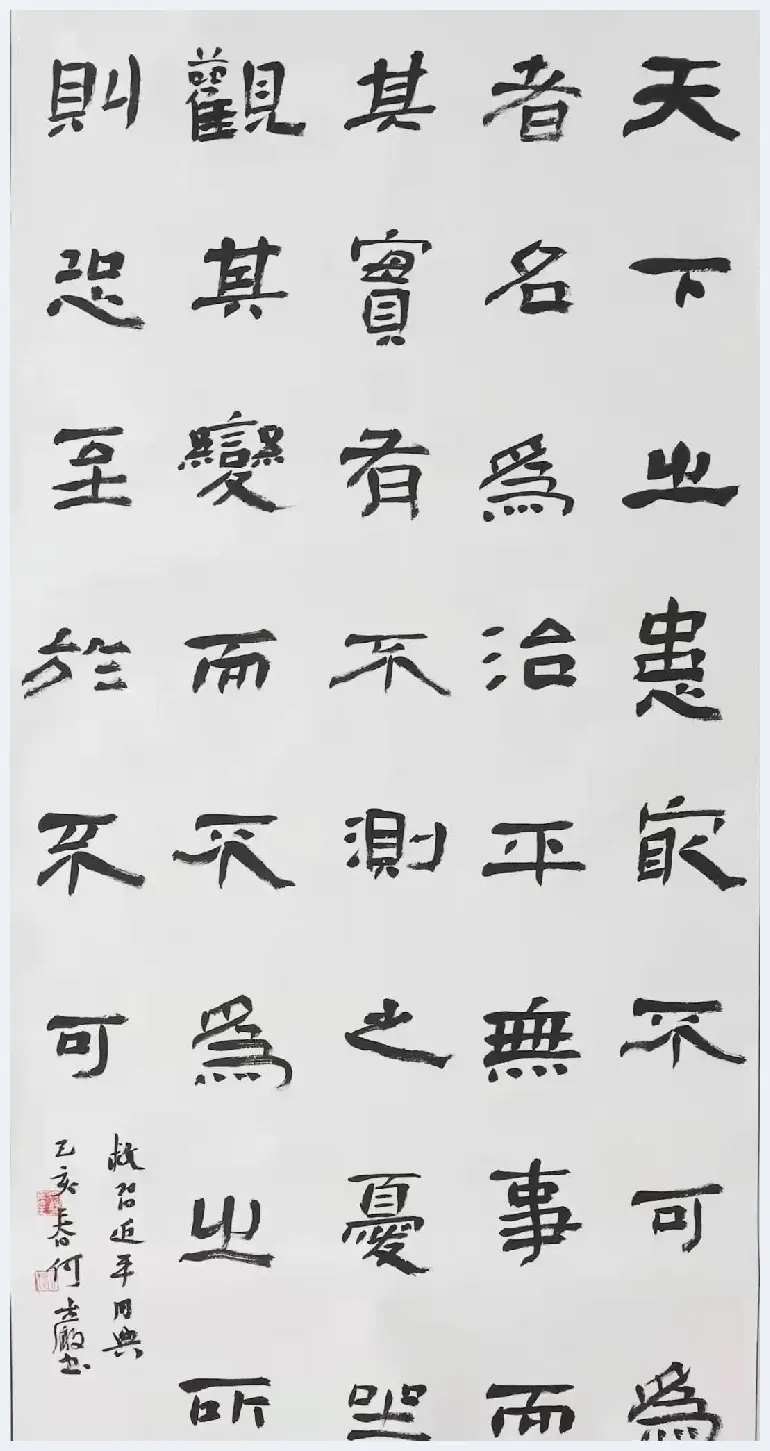 天下之患最不可為
者名為治平無事而
其實有不測之憂坐
觀其變而不為之所
則恐至於不可
救習近平用典
己亥春何書